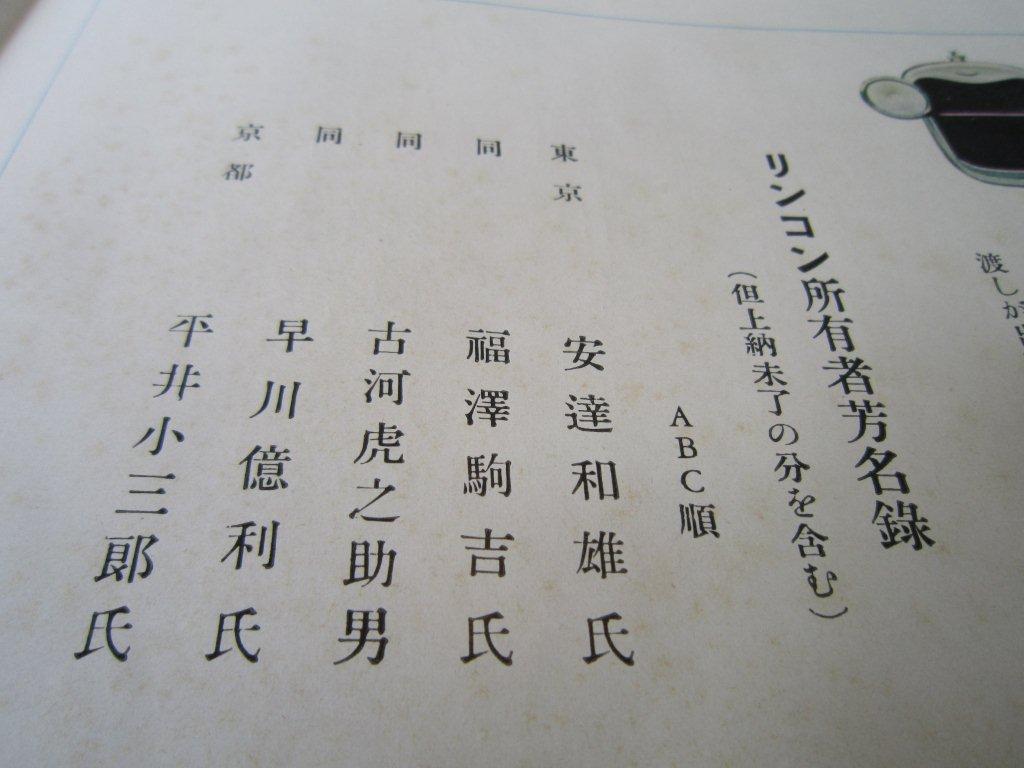 渡しが
リンコン所有者芳名錄
(但上納未了の分を含む)
ABC順
東京 安達和雄氏
同 福澤駒吉氏
同 古河虎之助男
同 早川億利氏
京都 平井小三郞氏